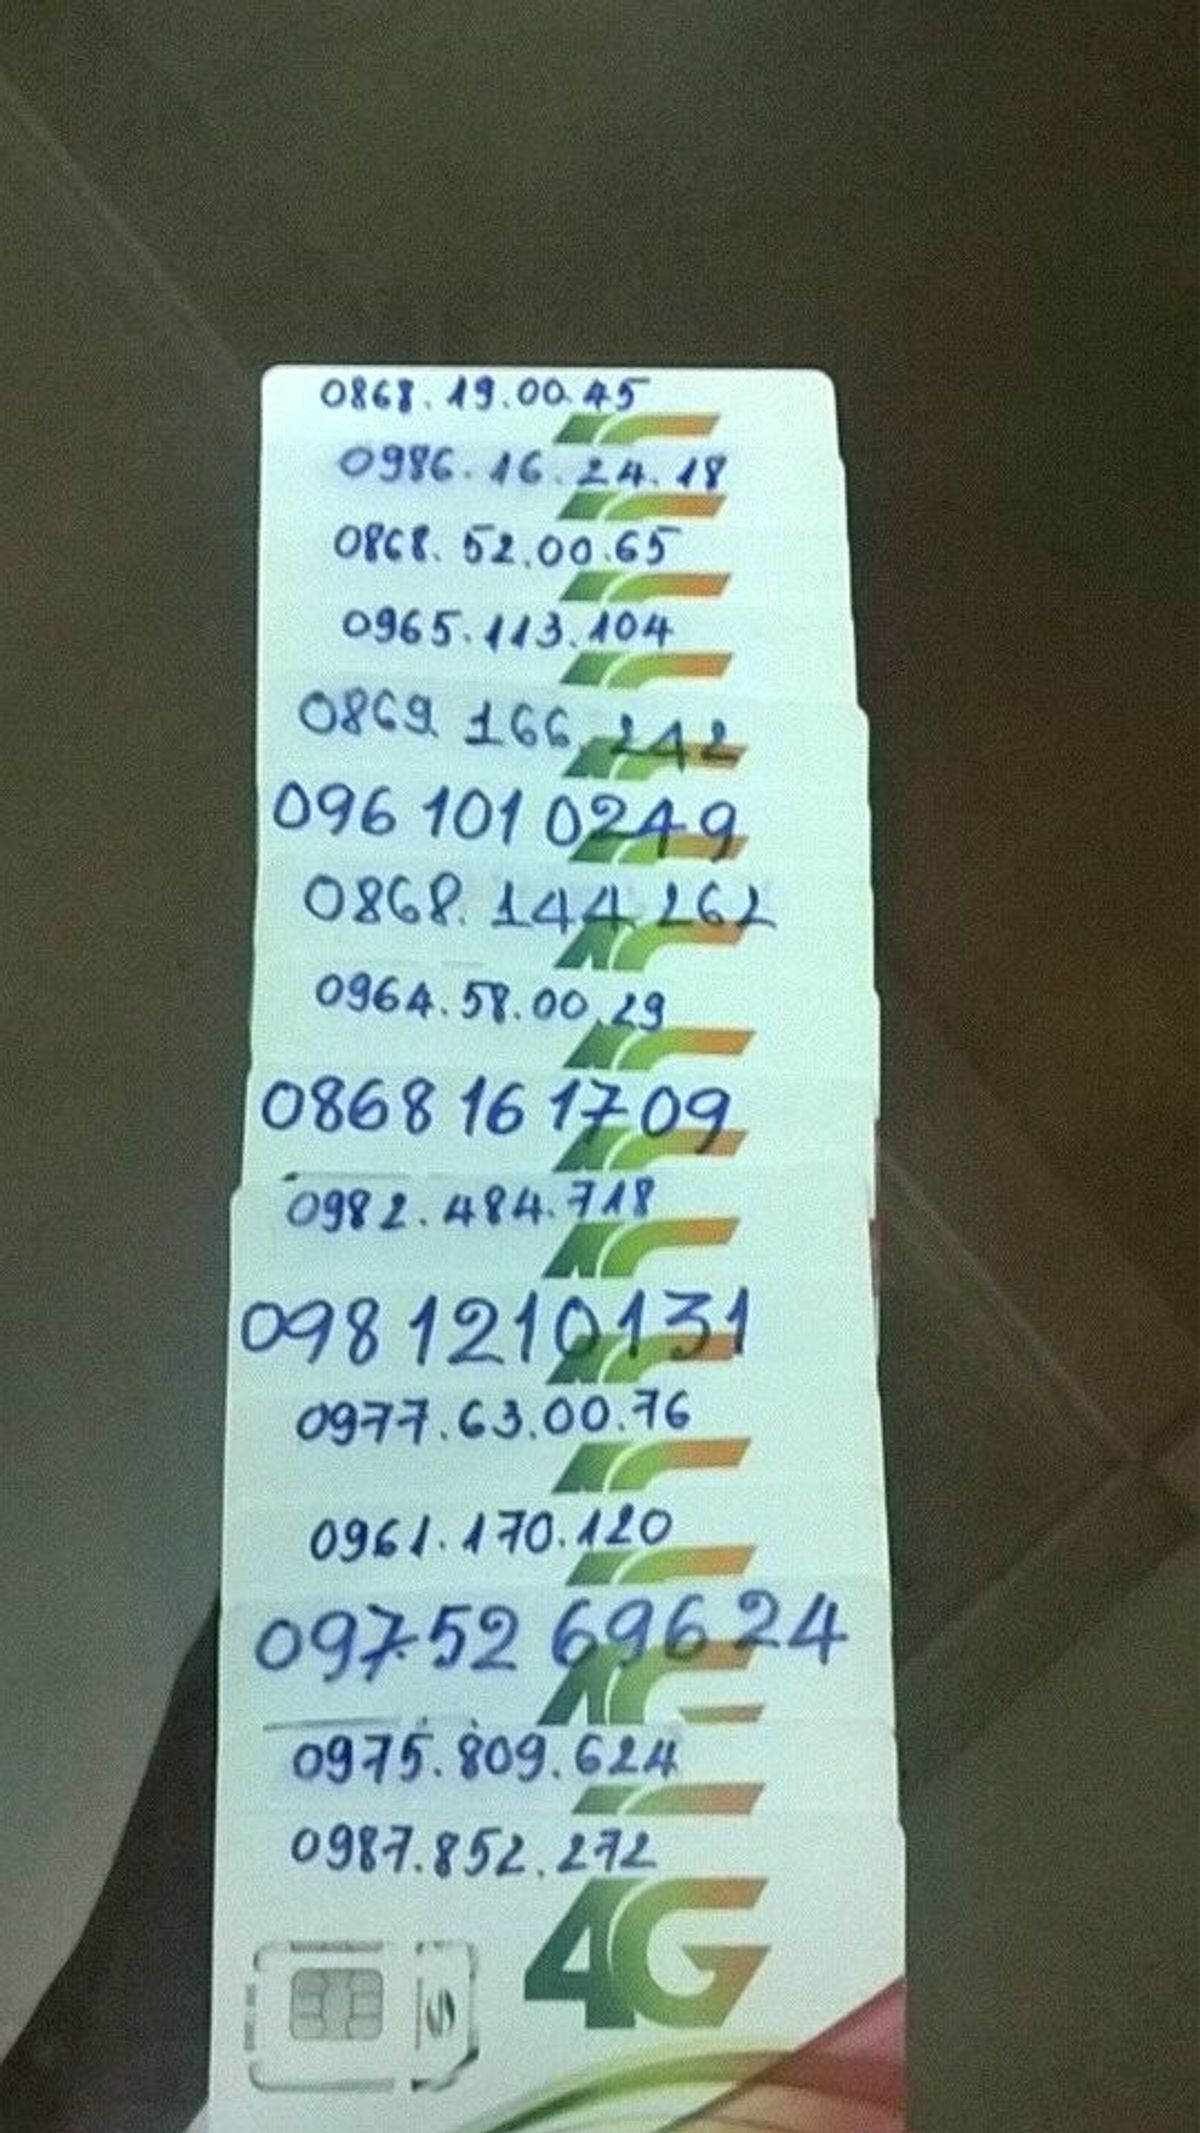 0868.19.00.45
0986.16.24.18
0868.52.00.65
0965.113.104
0869.166.242
096 101 0249
0868.144.262
0964.58.00.29
0868 16 1709
0982.484.718
098 1210131
0977.63.00.76
0961.170.120
09752 69624
0975.809.624
0987.852.272
4G